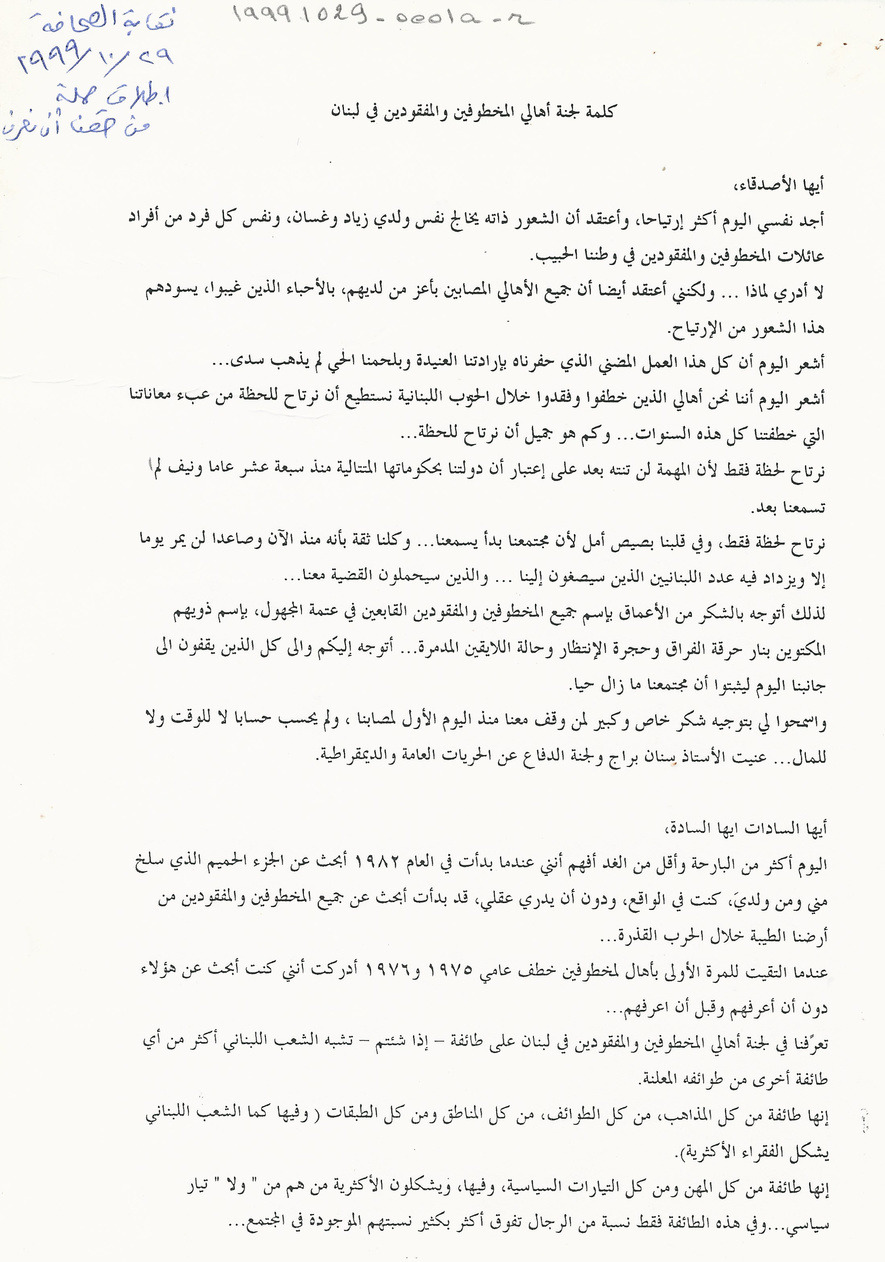 19991029-0001a-r
نقابة الصحافة
٢٩/١٠/١٩٩٩
اطلاق حملة
من حقنا أن نعرف
كلمة لجنة أهالي المخطوفين والمفقودين في لبنان
أيها الأصدقاء،
أجد نفسي اليوم أكثر إرتياحا، وأعتقد أن الشعور ذاته يخالج نفس ولدي زياد وغسان، ونفس كل فرد من أفراد
عائلات المخطوفين والمفقودين في وطننا الحبيب.
لا أدري لماذا ... ولكنني أعتقد أيضا أن جميع الأهالي المصابين بأعز من لديهم، بالأحباء الذين غيبوا، يسودهم
هذا الشعور من الإرتياح.
أشعر اليوم أن كل هذا العمل المضني الذي حفرناه بإرادتنا العنيدة وبلحمنا الحي لم يذهب سدى...
أشعر اليوم أننا نحن أهالي الذين خطفوا وفقدوا خلال الحرب اللبنانية نستطيع أن نرتاح للحظة من عبء معاناتنا
التي خطفتنا كل هذه السنوات... وكم هو جميل أن نرتاح للحظة...
نرتاح لحظة فقط لأن المهمة لن تنته بعد على إعتبار أن دولتنا بحكوماتها المتتالية منذ سبعة عشر عاما ونيف لم
تسمعنا بعد.
نرتاح لحظة فقط، وفي قلبنا بصيص أمل لأن مجتمعنا بدأ يسمعنا... وكلنا ثقة بأنه منذ الآن وصاعدا لن يمر يوما
إلا ويزداد فيه عدد اللبنانيين الذين سيصغون إلينا ... والذين سيحملون القضية معنا...
لذلك أتوجه بالشكر من الأعماق بإسم جميع المخطوفين والمفقودين القابعين في عتمة المجهول، بإسم ذويهم
المكتوين بنار حرقة الفراق وحجرة الإنتظار وحالة اللايقين المدمرة... أتوجه إليكم والى كل الذين يقفون الى
جانبنا اليوم ليثبتوا أن مجتمعنا ما زال حيا.
واسمحوا لي بتوجيه شكر خاص وكبير لمن وقف معنا منذ اليوم الأول لمصابنا ، ولم يحسب حسابا لا للوقت ولا
للمال... عنيت الأستاذ سنان براج ولجنة الدفاع عن الحريات العامة والديمقراطية.
أيها السادات ايها السادة،
اليوم أكثر من البارحة وأقل من الغد أفهم أنني عندما بدأت في العام ١٩٨٢ أبحث عن الجزء الحميم الذي سلخ
مني ومن ولديَ، كنت في الواقع، ودون أن يدري عقلي، قد بدأت أبحث عن جميع المخطوفين والمفقودين من
أرضنا الطيبة خلال الحرب القذرة...
عندما التقيت للمرة الأولى بأهال لمخطوفين خطف عامي ١٩٧٥ و١٩٧٦ أدركت أنني كنت أبحث عن هؤلاء
دون أن أعرفهم وقبل أن اعرفهم...
تعرّفنا في لجنة أهالي المخطوفين والمفقودين في لبنان على طائفة – إذا شئتم – تشبه الشعب اللبناني أكثر من أي
طائفة أخرى من طوائفه المعلنة.
إنها طائفة من كل المذاهب، من كل الطوائف، من كل المناطق ومن كل الطبقات ( وفيها كما الشعب اللبناني
يشكل الفقراء الأكثرية).
إنها طائفة من كل المهن ومن كل التيارات السياسية، وفيها، ويشكلون الأكثرية من هم من " ولا " تيار
سياسي...وفي هذه الطائفة فقط نسبة من الرجال تفوق أكثر بكثير نسبتهم الموجودة في المجتمع...